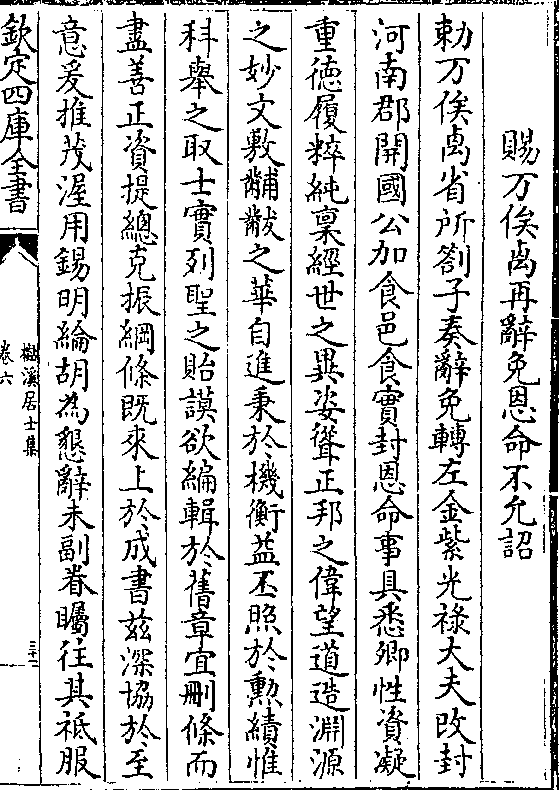 賜万俟卨再辭免恩命不允詔
勅万俟卨省所劄子奏辭免轉左金紫光祿大夫改封
河南郡開國公加食邑食實封恩命事具悉卿性資凝
重德履粹純稟經世之異姿聳正邦之偉望道造淵源
之妙文敷黼黻之華自進秉於機衡葢丕照於勲績惟
科舉之取士實列聖之貽謨欲編輯於舊章宜刪條而
盡善正資提總克振綱條既來上於成書兹深協於至
意爰推茂渥用錫明綸胡為懇辭未副眷矚往其祗服
欽定四庫全書
溪居士集
卷六
三十一